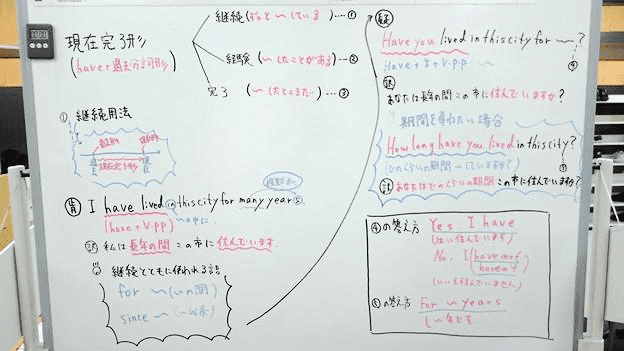 現在完了形
(have+過去分詞形)
継続(ずっと〜している)…①
経験(〜したことがある)…②
完了(〜したところだ…)…③
① 継続用法
過去
現在完了形
現在
肯 I have lived in this city for many years.
(have+V.pp)
〜の中に
複数形
訳 私は長年の間この市に住んでいます。
継続とともに使われる語
for 〜(〜の間)
since 〜(〜以来)
Have you lived in this city for 〜?
Have+S+V.pp 〜
④
訳
あなたは長年の間この市に住んでいますか?
期間を尋ねたい場合
How long have you lived in this city?
(どのくらいの期間〜していますか?)
⑤
訳 あなたはどのくらいの期間この市に住んでいますか?
④の答え方 Yes, I have
(はい住んでいます)
No, I have not
haven't
(いいえ住んでいません)
⑤の答え方 For 〜 years
(〜年です